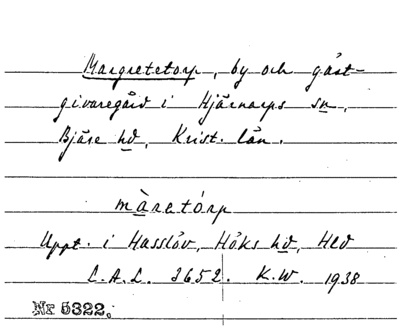 Margretetorp, by och gäst-
givaregård i Hjärnarps sn,
Bjäre hd, Krist. län.
màretórp
Uppt. i Hasslöv, Höks hd, Hld
L.A.L. 2652. K.W. 1938
Nr 5322.